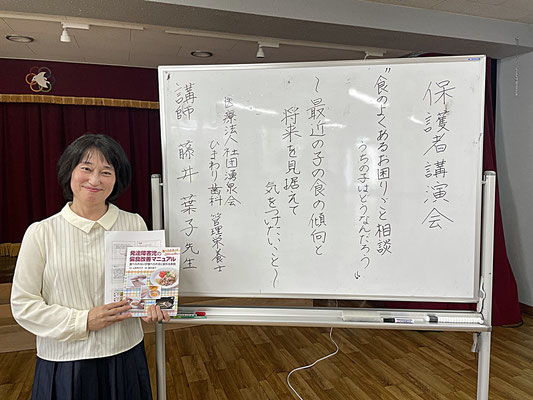 保護者講演会
"食のよくあるお困りごと相談
うちの子はどうなんだろう"
～最近の子の食の傾向と
将来を見据えて
気をつけたいこと～
医療法人社団湧泉会
ひまわり歯科 管理栄養士
講師 藤井 葉子 先生
発達障害児の
偏食改善マニュアル